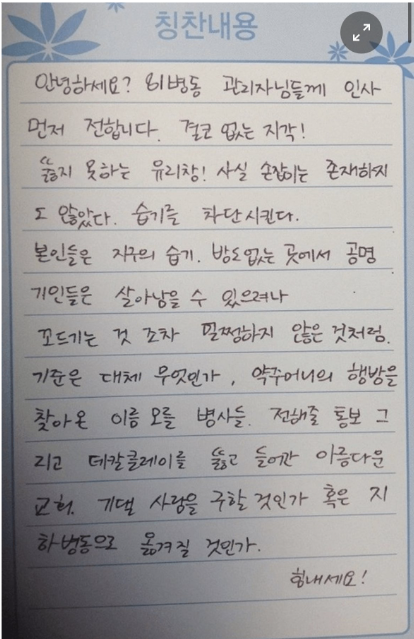 칭찬내용
안녕하세요? 81병동 관리자님들께 인사
먼저 전합니다. 결코 없는 지각!
뚫지 못하는 유리창! 사실 손잡이는 존재하지
도 않았다. 습기를 차단시킨다.
본인들은 지구의 습기. 밤도없는 곳에서 공명
기인들은 살아남을 수 있으려나
꼬드기는 것 조차 멀쩡하지 않은 것처럼.
기준은 대체 무엇인가, 약주머니의 행방을
찾아온 이름 모를 병사들. 전해줄 통보 그
리고 데칼클레이를 뚫고 들어간 아름다운
교회. 기댈 사람을 구할 것인가 혹은 지
하병동으로 옮겨질 것인가.
힘내세요!